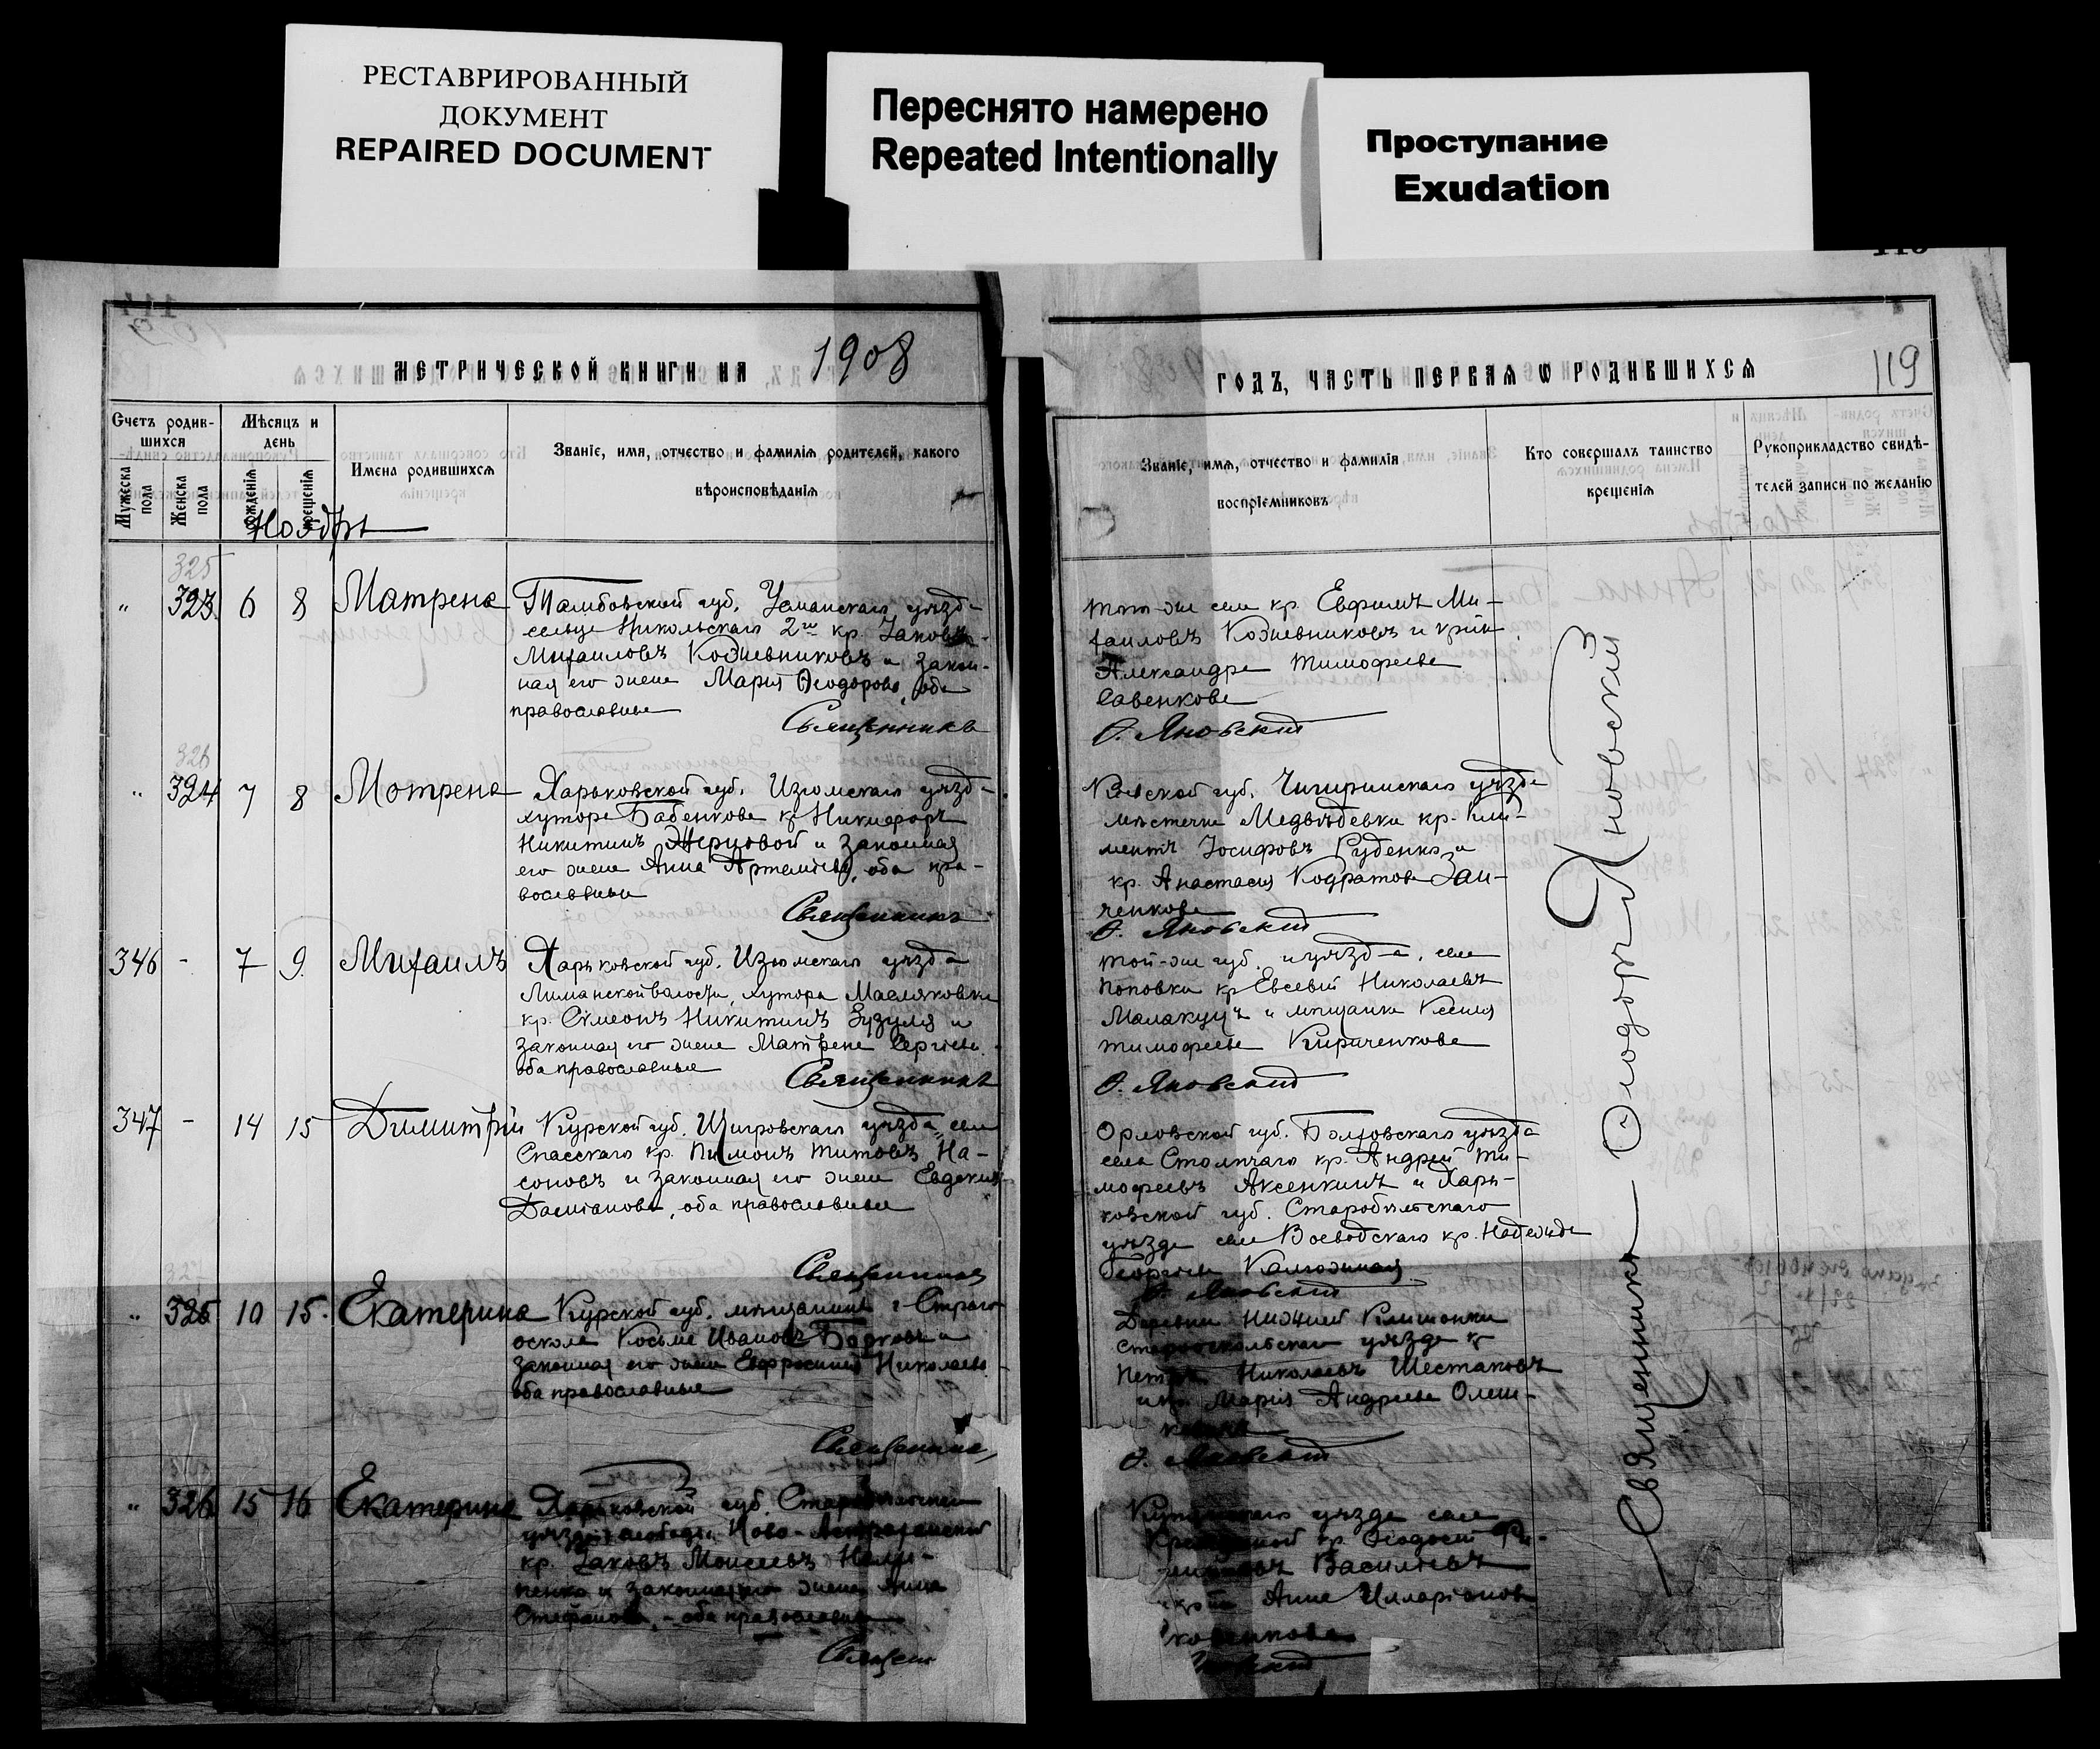 РЕСТАВРИРОВАННЫЙ
ДОКУМЕНТ
REPAIRED DOCUMENT
Переснято намерено
Repeated Intentionally
Проступание
Exudation
МЕТРИЧЕСКОЙ КНИГИ НА 1908
Счетъ родив-
шихся
Мужеска пола
Женска пола
Мѣсяцъ и
день
рожденія
крещенія
Имена родившихся
Званіе, имя, отчество и фамилія родителей, какого
вѣроисповѣданія
Ноябрь
325
" 323. 6 8 Матрена
Тамбовской губ. Усманскаго уѣзда
сельца Никольскаго 2го кр. Іаковъ
Михаиловъ Кожевниковъ и закон-
ная его жена Марія Ѳеодорова, оба
православные
Священникъ
326
" 324 7 8 Мотрена
Харьковской губ. Изюмскаго уѣзда
хутора Бабенкова кр. Никифоръ
Никитинъ и законная
его жена Анна Артеміева, оба пра-
вославные
Священникъ
346 - 7 9. Михаилъ
Харьковской губ. Изюмскаго уѣзда
Лиманской волости, хутора Масляковки
кр. Сѵмеонъ Никитинъ Зузуля и
законная его жена Матрена Сергіева
оба православные
Священникъ
347 - 14 15 Димитрій
Курской губ. Щигровскаго уѣзда, села
Спасскаго кр. Пименъ Титовъ На-
соновъ и законная его жена Евдокія
Даміанова, оба православные
Священникъ
327
" 325 10 15. Екатерина
Курской губ. мѣщанинъ г. Стараго
оскола Косьма Ивановъ и
законная его жена Евфросинія Николаева
оба православные
Священникъ
" 326 15 16 Екатерина
Харьковской губ.
уѣзда слободы Ново-
кр. Іаковъ Моисеевъ
и законная его жена Анна
Стефанова, - оба православные
Священ
ГОДЪ, ЧАСТЬ ПЕРВАЯ Ѡ РОДИВШИХСЯ
119
Званіе, имя, отчество и фамилія
воспріемниковъ
Кто совершалъ таинство
крещенія
Рукоприкладство свидѣ-
телей записи по желанію
того-же села кр. Евфимъ Ми-
хаиловъ Кожевниковъ и кр-ка
Александра Тимофеева
Савенкова
Ѳ. Яновскій
Кіевской губ. Чигиринскаго уѣзда
мѣстечка Медвѣдевки кр. Кли-
ментъ Іосифовъ Руденко и
кр. Анастасія Кодратова Заи-
ченкова
Ѳ. Яновскій
той-же губ. и уѣзда, села
Поповки кр. Евсевій Николаевъ
Малакуцъ и мѣщанка Ксенія
Тимофеева Кириченкова
Ѳ. Яновскій
Орловской губ. Болховскаго уѣзда
села кр. Андрей Ти-
мофеевъ Аксенкинъ и Харь-
ковской губ. Старобѣльскаго
уѣзда села Воеводскаго кр. Надежда
Георгіева
Ѳ. Яновскій
Деревни Нижней
Старооскольскаго уѣзда кр.
Петръ Николаевъ Шестаковъ
и кр. Марія Андреева Олеш-
Ѳ. Яновскій
уѣзда села
кр. Ѳеодосій
Васильевъ
Анна Илларіонова
Священникъ Ѳеодоръ Яновскій